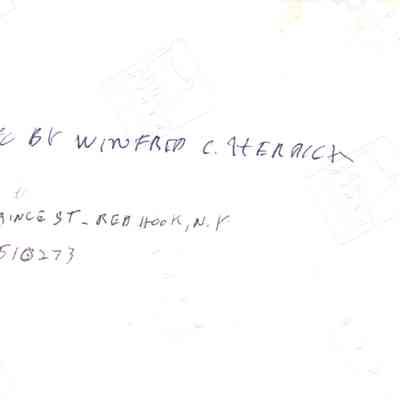 BY WINFRED C. HERRICK
PRINCE ST - RED HOOK, N.Y
510273